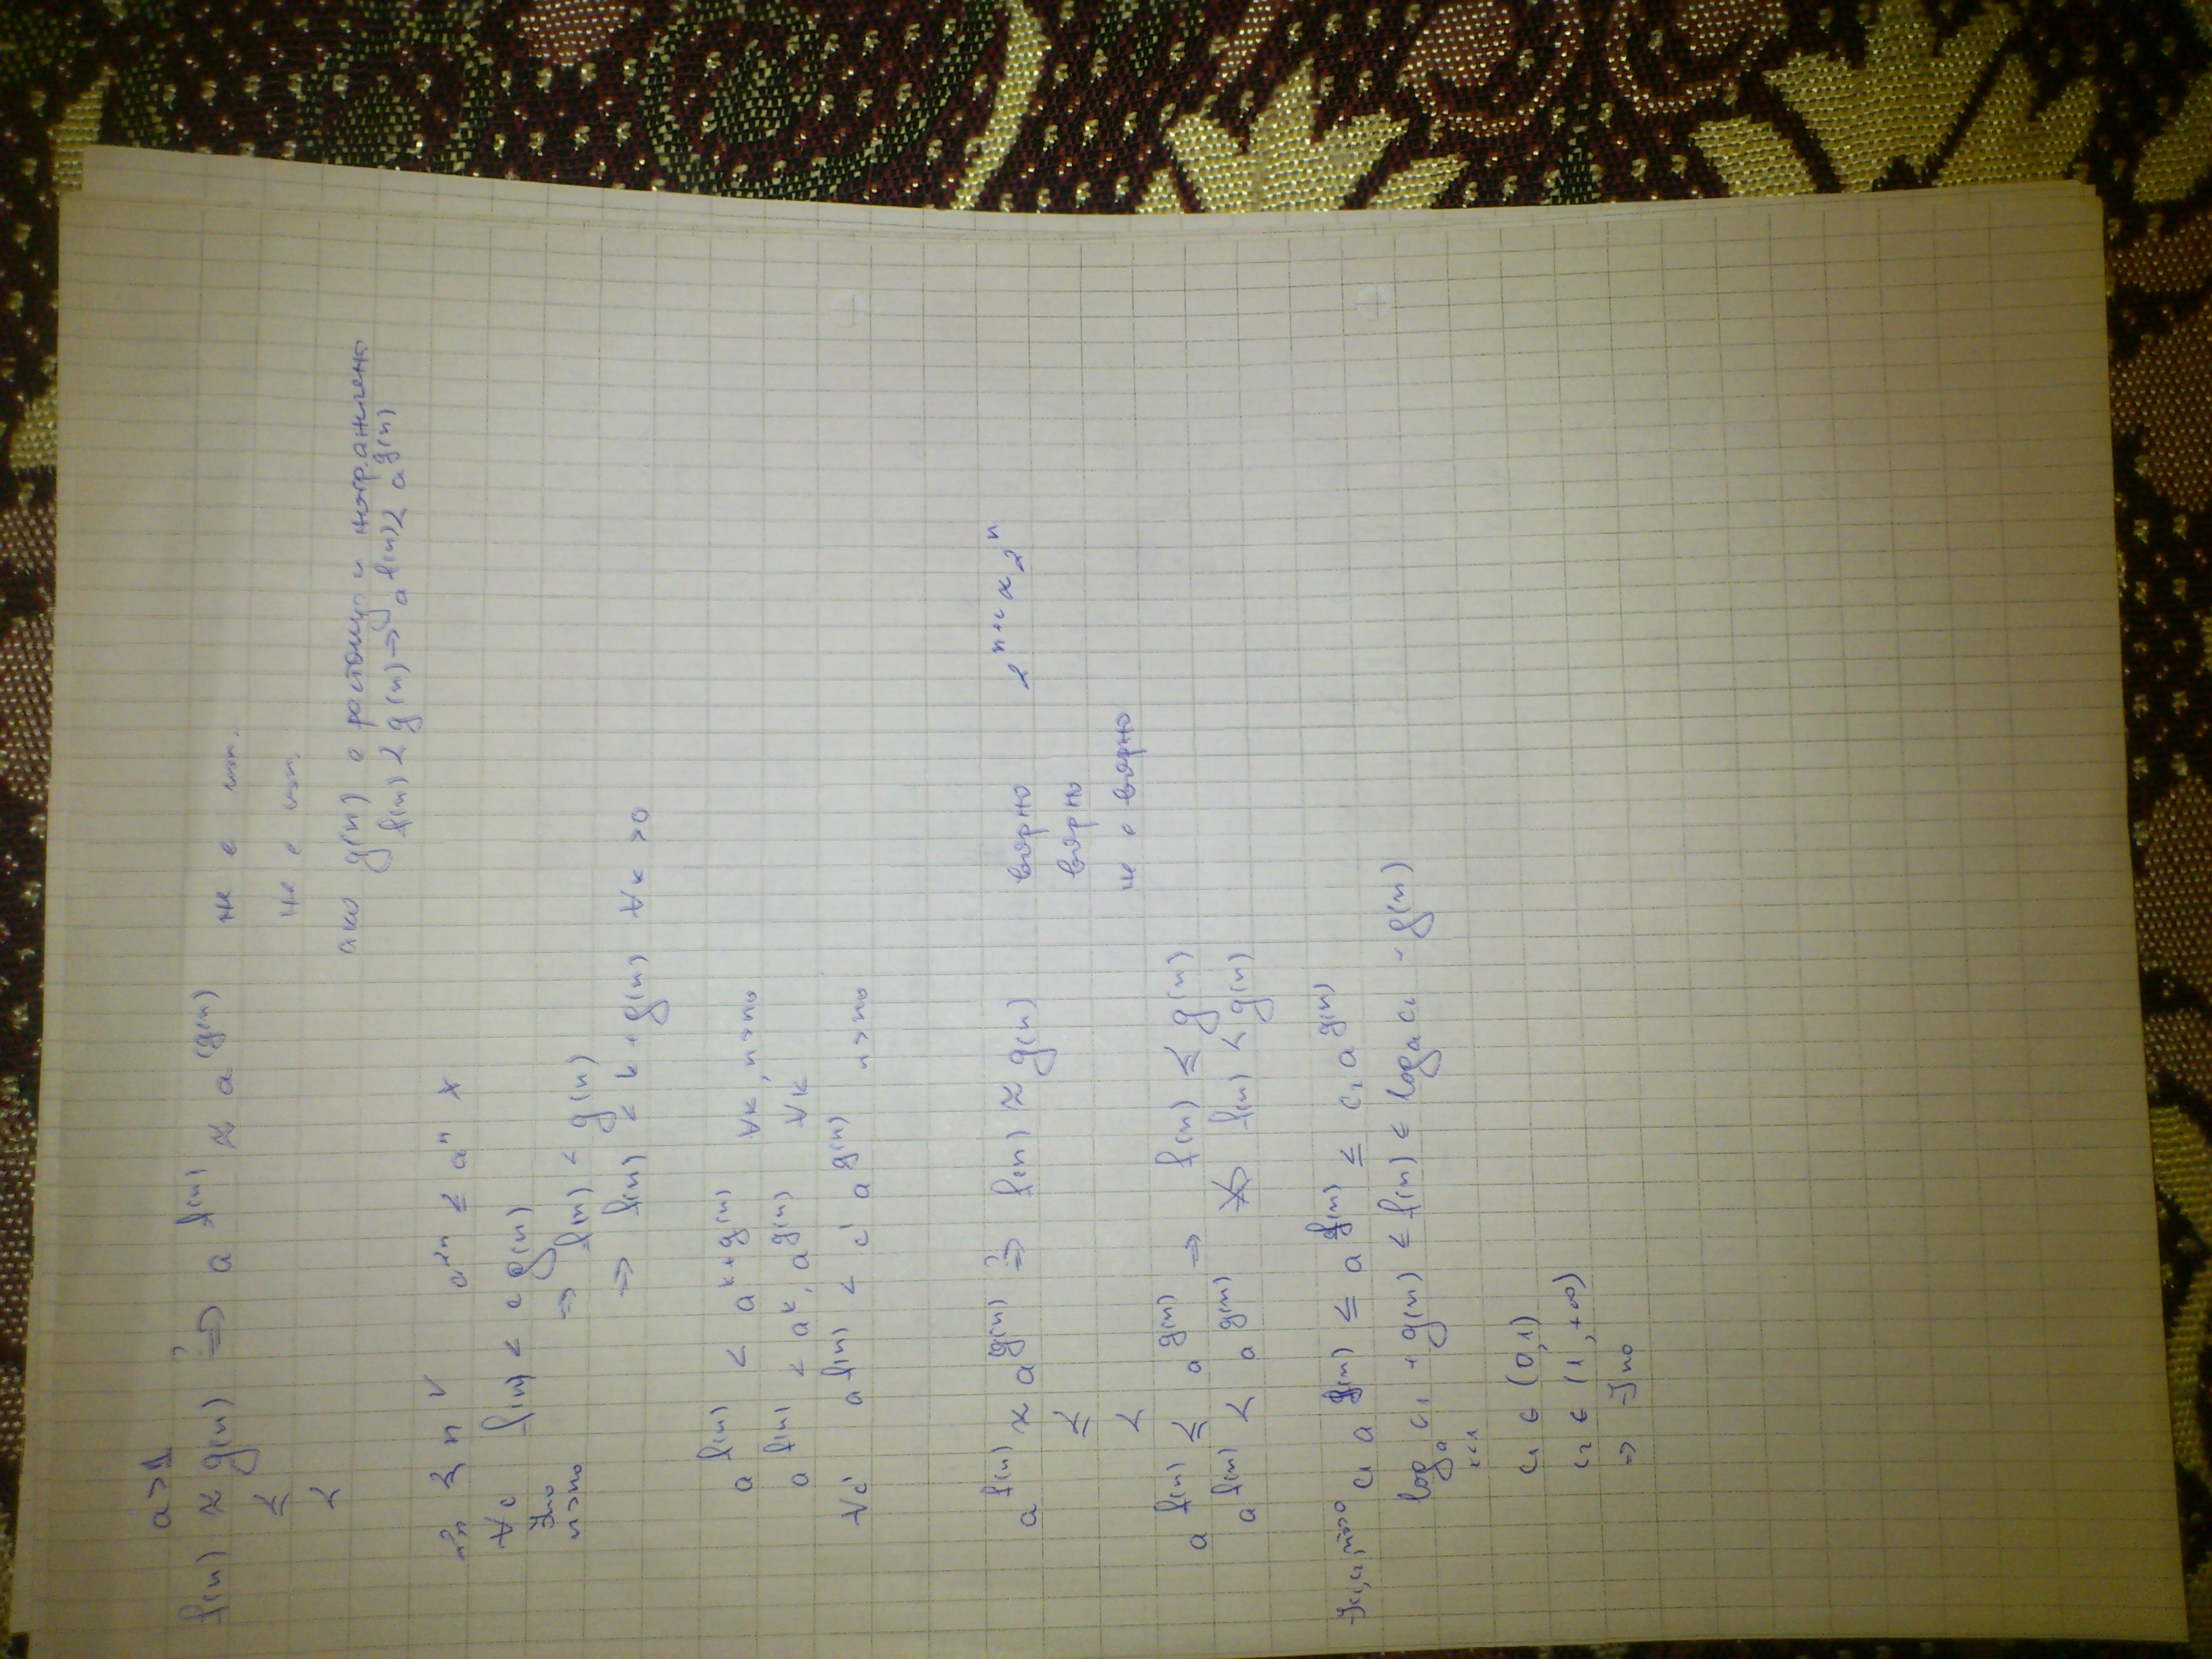 a>1
f(n) ≍ g(n) ?⇒ a^f(n) ≍ a^g(n) не е
≼ не е
≺ ако g(n) е растящо и неогранжено
f(n) ≺ g(n) → a^f(n) ≺ a^g(n)
2n ≼ n ✓ a^2n ≤ a^n ×
∀c f(n) < c g(n)
∃n₀ ⇒ f(n) < g(n)
n>n₀ ⇒ f(n) < k + g(n) ∀k >0
a^f(n) < a^k+g(n) ∀k, n>n₀
a^f(n) < a^k . a^g(n) ∀k
∀c' a^f(n) < c' a^g(n) n>n₀
a^f(n) ≍ a^g(n) ?⇒ f(n) ≍ g(n) вярно 2^n+c ≍ 2^n
≼ вярно
≺ не е вярно
a^f(n) ≼ a^g(n) ⇒ f(n) ≼ g(n)
a^f(n) ≺ a^g(n) ⇏ f(n) ≺ g(n)
∃c₁,c₂, n>n₀ c₁ a^g(n) ≤ a^f(n) ≤ c₂ a^g(n)
log_a c₁ + g(n) ≤ f(n) ≤ log_a c₂ + g(n)
c₁ ∈ (0,1)
c₂ ∈ (1,+∞)
⇒ ∃n₀